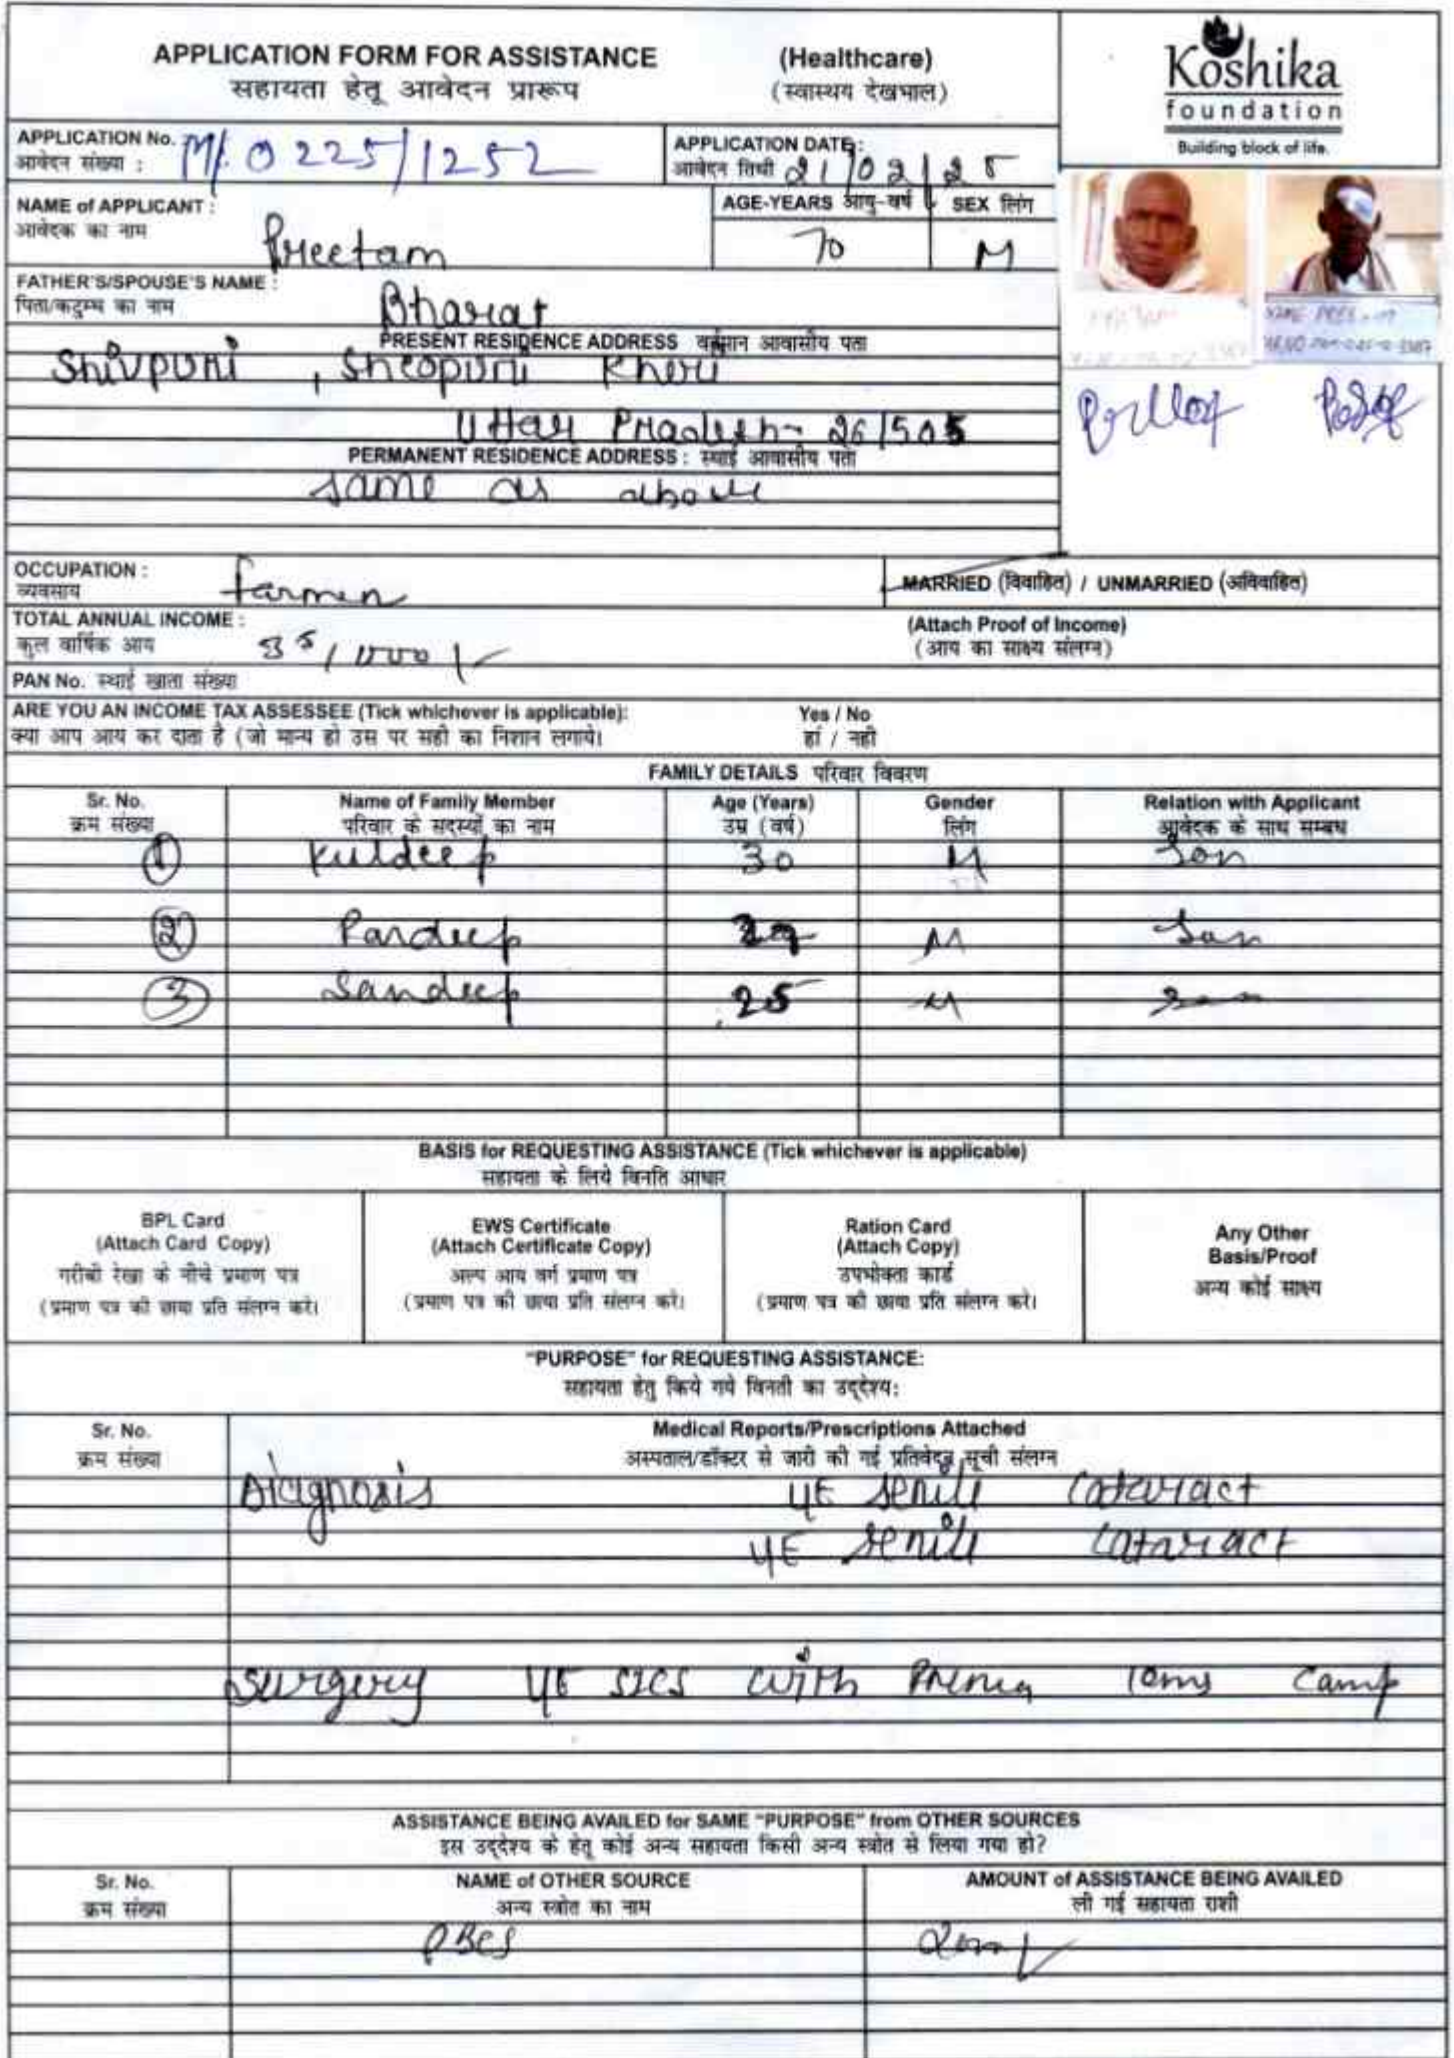 APPLICATION FORM FOR ASSISTANCE (Healthcare)
सहायता हेतू आवेदन प्रारूप (स्वास्थय देखभाल)
Koshika
foundation
Building block of life.
APPLICATION No. M/0225/1252
आवेदन संख्या :
APPLICATION DATE: 21/02/25
आवेदन तिथी
NAME of APPLICANT : Preetam
आवेदक का नाम
AGE-YEARS आयु-वर्ष 70
SEX लिंग M
FATHER'S/SPOUSE'S NAME : Bharat
पिता/कटुम्ब का नाम
PRESENT RESIDENCE ADDRESS वर्तमान आवासीय पता
Shivpuri , Sheopuri Kheri
Uttar Pradesh- 261505
PERMANENT RESIDENCE ADDRESS : स्थाई आवासीय पता
same as above
OCCUPATION : farmer
व्यवसाय
MARRIED (विवाहित) / UNMARRIED (अविवाहित)
TOTAL ANNUAL INCOME : 35/000/-
कुल वार्षिक आय
(Attach Proof of Income)
(आय का साक्ष्य संलग्न)
PAN No. स्थाई खाता संख्या
ARE YOU AN INCOME TAX ASSESSEE (Tick whichever is applicable): Yes / No
क्या आप आय कर दाता है (जो मान्य हो उस पर सही का निशान लगाये। हां / नही
FAMILY DETAILS परिवार विवरण
Sr. No. Name of Family Member Age (Years) Gender Relation with Applicant
क्रम संख्या परिवार के सदस्यों का नाम उम्र (वर्ष) लिंग आवेदक के साथ सम्बध
1 Kuldeep 30 M Son
2 Pardeep M Son
3 Sandeep 25 M Son
BASIS for REQUESTING ASSISTANCE (Tick whichever is applicable)
सहायता के लिये विनति आधार
BPL Card
(Attach Card Copy)
गरीबी रेखा के नीचे प्रमाण पत्र
(प्रमाण पत्र की छाया प्रति संलग्न करे।
EWS Certificate
(Attach Certificate Copy)
अल्प आय वर्ग प्रमाण पत्र
(प्रमाण पत्र की छाया प्रति संलग्न करे।
Ration Card
(Attach Copy)
उपभोक्ता कार्ड
(प्रमाण पत्र की छाया प्रति संलग्न करे।
Any Other
Basis/Proof
अन्य कोई साक्ष्य
"PURPOSE" for REQUESTING ASSISTANCE:
सहायता हेतु किये गये विनती का उद्देश्य:
Sr. No. Medical Reports/Prescriptions Attached
क्रम संख्या अस्पताल/डॉक्टर से जारी की गई प्रतिवेदन सूची संलग्न
Diagnosis senile cataract
senile cataract
surgery SICS with camp
ASSISTANCE BEING AVAILED for SAME "PURPOSE" from OTHER SOURCES
इस उद्देश्य के हेतू कोई अन्य सहायता किसी अन्य स्त्रोत से लिया गया हो?
Sr. No. NAME of OTHER SOURCE AMOUNT of ASSISTANCE BEING AVAILED
क्रम संख्या अन्य स्त्रोत का नाम ली गई सहायता राशी